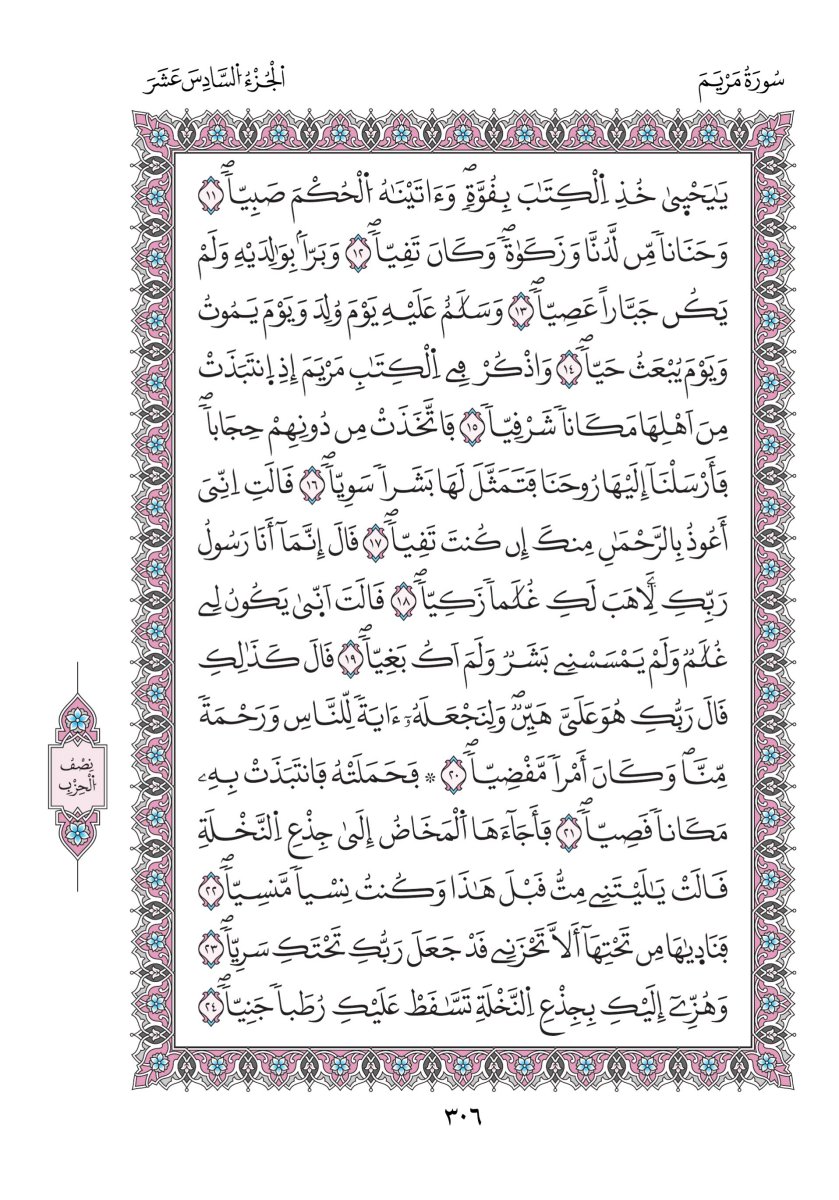 سُورَةُ مَرْيَمَ
اَلْجُزْءُ اَلسَّادِسَ عَشَرَ
يَٰيَحْيٜىٰ خُذِ اِلْكِتَٰبَ بِقُوَّةٖۖ وَءَاتَيْنَٰهُ اُلْحُكْمَ صَبِيّاٗۖ ١١
وَحَنَاناٗ مِّن لَّدُنَّا وَزَكَوٰةٗۖ وَكَانَ تَقِيّاٗۖ ١٢ وَبَرّاَۢ بِوَٰلِدَيْهِ وَلَمْ
يَكُن جَبَّاراً عَصِيّاٗۖ ١٣ وَسَلَٰمٌ عَلَيْهِ يَوْمَ وُلِدَ وَيَوْمَ يَمُوتُ
وَيَوْمَ يُبْعَثُ حَيّاٗۖ ١٤ وَاذْكُرْ فِے اِلْكِتَٰبِ مَرْيَمَ إِذِ اِنتَبَذَتْ
مِنَ اَهْلِهَا مَكَاناٗ شَرْقِيّاٗ ١٥ فَاتَّخَذَتْ مِن دُونِهِمْ حِجَاباٗۖ
فَأَرْسَلْنَآ إِلَيْهَا رُوحَنَا فَتَمَثَّلَ لَهَا بَشَراٗ سَوِيّاٗۖ ١٦ قَالَتِ اِنِّيَ
أَعُوذُ بِالرَّحْمَٰنِ مِنكَ إِن كُنتَ تَقِيّاٗۖ ١٧ قَالَ إِنَّمَآ أَنَا رَسُولُ
رَبِّكِ لِأَهَبَ لَكِ غُلَٰماٗ زَكِيّاٗۖ ١٨ قَالَتَ اَنّٜىٰ يَكُونُ لِے
غُلَٰمٞ وَلَمْ يَمْسَسْنِے بَشَرٞ وَلَمَ اَكُ بَغِيّاٗۖ ١٩ قَالَ كَذَٰلِكِ
قَالَ رَبُّكِ هُوَ عَلَيَّ هَيِّنٞۖ وَلِنَجْعَلَهُۥٓ ءَايَةٗ لِّلنَّاسِ وَرَحْمَةٗ
مِّنَّاۖ وَكَانَ أَمْراٗ مَّقْضِيّاٗۖ ٢٠ ۞ فَحَمَلَتْهُ فَانتَبَذَتْ بِهِۦ
مَكَاناٗ قَصِيّاٗۖ ٢١ فَأَجَآءَهَا اَلْمَخَاضُ إِلَىٰ جِذْعِ اِلنَّخْلَةِ
قَالَتْ يَٰلَيْتَنِے مِتُّ قَبْلَ هَٰذَا وَكُنتُ نِسْياٗ مَّنسِيّاٗۖ ٢٢
فَنَادٜيٰهَا مِن تَحْتِهَآ أَلَّا تَحْزَنِے قَدْ جَعَلَ رَبُّكِ تَحْتَكِ سَرِيّاٗۖ ٢٣
وَهُزِّےٓ إِلَيْكِ بِجِذْعِ اِلنَّخْلَةِ تَسَّٰقَطْ عَلَيْكِ رُطَباٗ جَنِيّاٗۖ ٢٤
نِصْفُ
اَلْحِزْبِ
٣٠٦